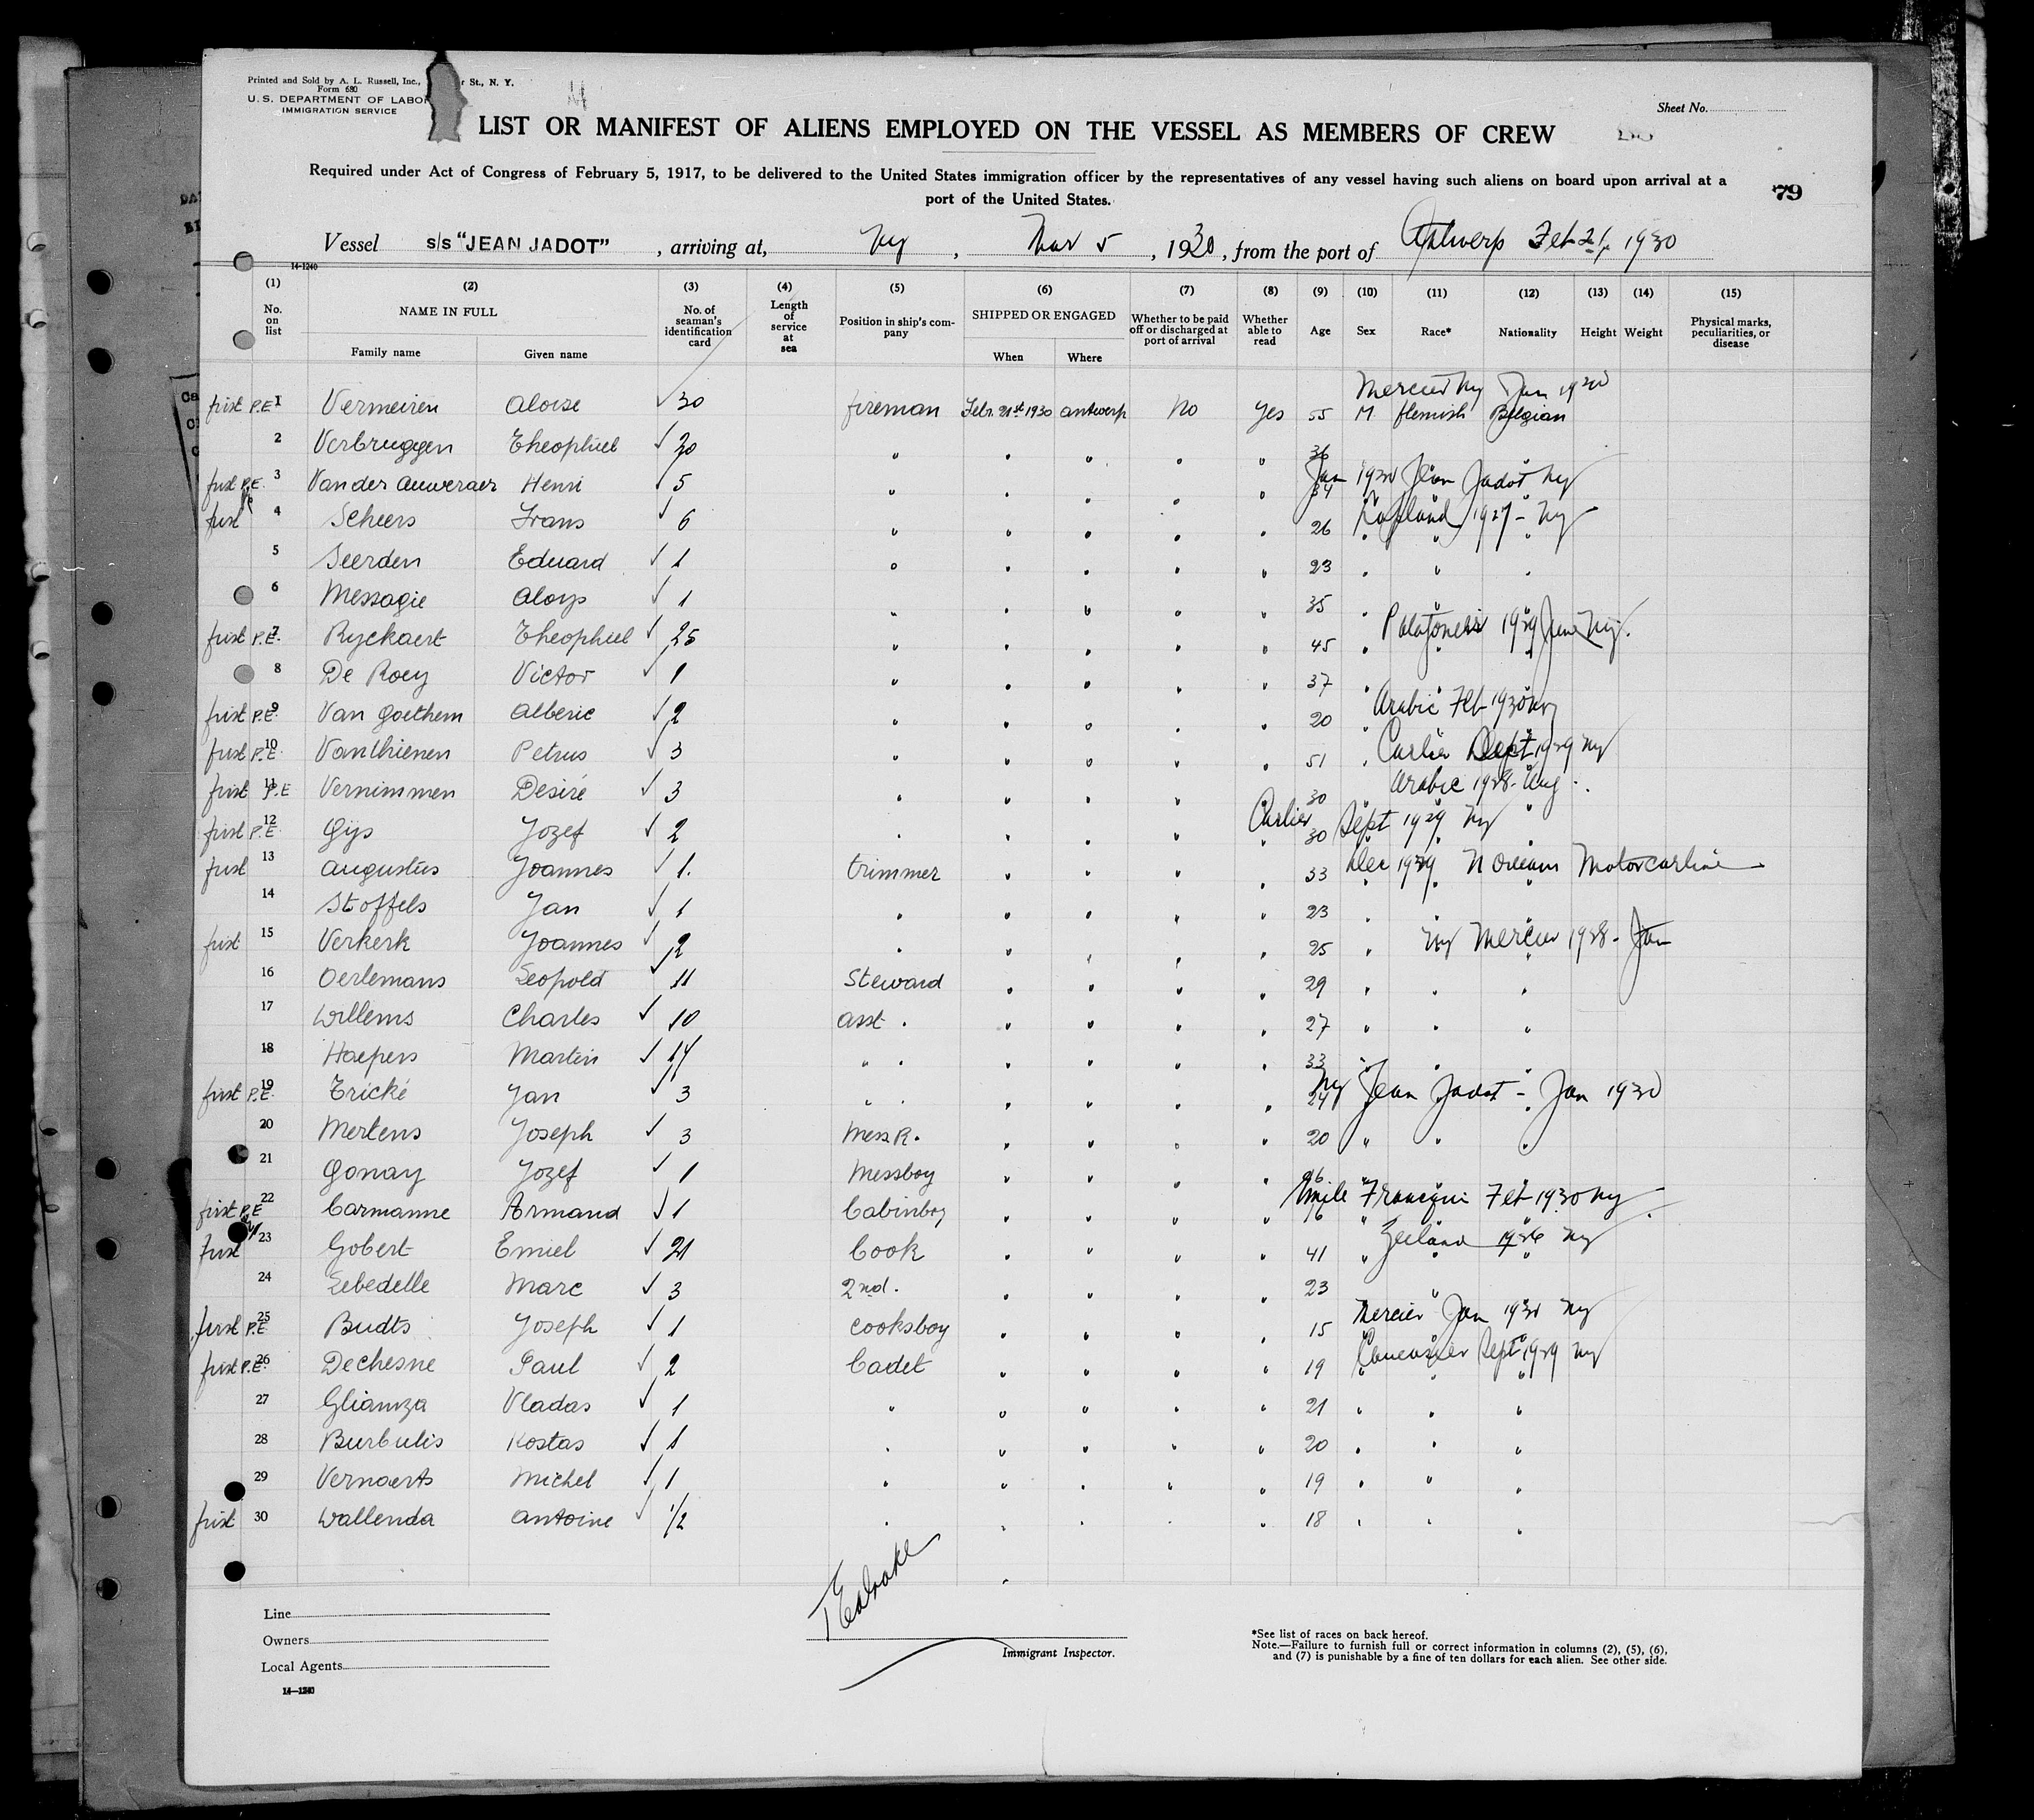 Printed and Sold by A. L. Russell, Inc., r St., N. Y.
Form 680
U. S. DEPARTMENT OF LABOR
IMMIGRATION SERVICE
Sheet No.
LIST OR MANIFEST OF ALIENS EMPLOYED ON THE VESSEL AS MEMBERS OF CREW
Required under Act of Congress of February 5, 1917, to be delivered to the United States immigration officer by the representatives of any vessel having such aliens on board upon arrival at a
port of the United States.
79
Vessel s/s "JEAN JADOT", arriving at, Ny, Mar 5, 1930, from the port of Antwerp Feb 21, 1930
14-1240
(1) (2) (3) (4) (5) (6) (7) (8) (9) (10) (11) (12) (13) (14) (15)
No. on list NAME IN FULL No. of seaman's identification card Length of service at sea Position in ship's company SHIPPED OR ENGAGED Whether to be paid off or discharged at port of arrival Whether able to read Age Sex Race* Nationality Height Weight Physical marks, peculiarities, or disease
Family name Given name When Where
Mercier Ny Jan 1930
first P.E. 1 Vermeiren Aloise √ 30 fireman Febr. 21st 1930 antwerp No Yes 55 M flemish Belgian
2 Verbruggen Theophiel √ 20 " " " " " 36
first P.E. 3 Van der Auweraer Henri √ 5 " " " " " 34 Jan 1930 Jean Jadot Ny
first 4 Scheers Frans √ 6 " " " " " 26 Lapland 1927 - Ny
5 Seerden Eduard √ 1 " " " " " 23 " " "
6 Messagie Aloys √ 1 " " " " " 35 " " "
first P.E. 7 Ryckaert Theophiel √ 25 " " " " " 45 " 1929 June Ny.
8 De Roey Victor √ 1 " " " " " 37 " " "
first P.E. 9 Van Goethem Alberic √ 2 " " " " " 20 " Arabic Feb 1930 Ny
first P.E. 10 Vanthienen Petrus √ 3 " " " " " 51 " Carlier Sept 1929 Ny
first P.E 11 Vernimmen Desiré √ 3 " " " " " 30 Arabic 1928 - Aug
first P.E. 12 Gijs Jozef √ 2 " " " " " 30 Carlier Sept 1929 Ny
first 13 Augustus Joannes √ 1. trimmer " " " " 33 Dec 1929 N Orleans Motorcarline
14 Stoffels Jan √ 1 " " " " " 23 " " "
first 15 Verkerk Joannes √ 2 " " " " " 25 " Ny Mercier 1928 - Jan
16 Oerlemans Leopold √ 11 Steward " " " " 29 " " "
17 Willems Charles √ 10 asst. " " " " " 27 " " "
18 Haepers Martin √ 14 " " " " " " 33 " " "
first P.E. 19 Trické Jan √ 3 " " " " " " 24 Ny Jean Jadot - Jan 1930
20 Mertens Joseph √ 3 Mess R. " " " " 20 " " "
21 Gonay Jozef √ 1 Messboy " " " " 26 " " "
first P.E 22 Carmanne Armand √ 1 Cabinboy " " " " 16 Emile Francqui Feb 1930 Ny
First 23 Gobert Emiel √ 21 Cook " " " " 41 " Zeeland 1926 Ny
24 Lebedelle Marc √ 3 2nd. " " " " " 23
first P.E 25 Budts Joseph √ 1 cooksboy " " " " 15 Mercier Jan 1930 Ny
first P.E. 26 Dechesne Paul √ 2 Cadet " " " " 19 Sept 1929 Ny
27 Gliamza Vladas √ 1 " " " " " 21 " " "
28 Burbulis Kostas √ 1 " " " " " 20 " " "
29 Vernaerts Michel √ 1 " " " " " 19 " " "
first 30 Wallenda Antoine √ 1/2 " " " " " 18 " " "
Line
Owners
Local Agents
14-1240
Immigrant Inspector.
*See list of races on back hereof.
Note.—Failure to furnish full or correct information in columns (2), (5), (6),
and (7) is punishable by a fine of ten dollars for each alien. See other side.